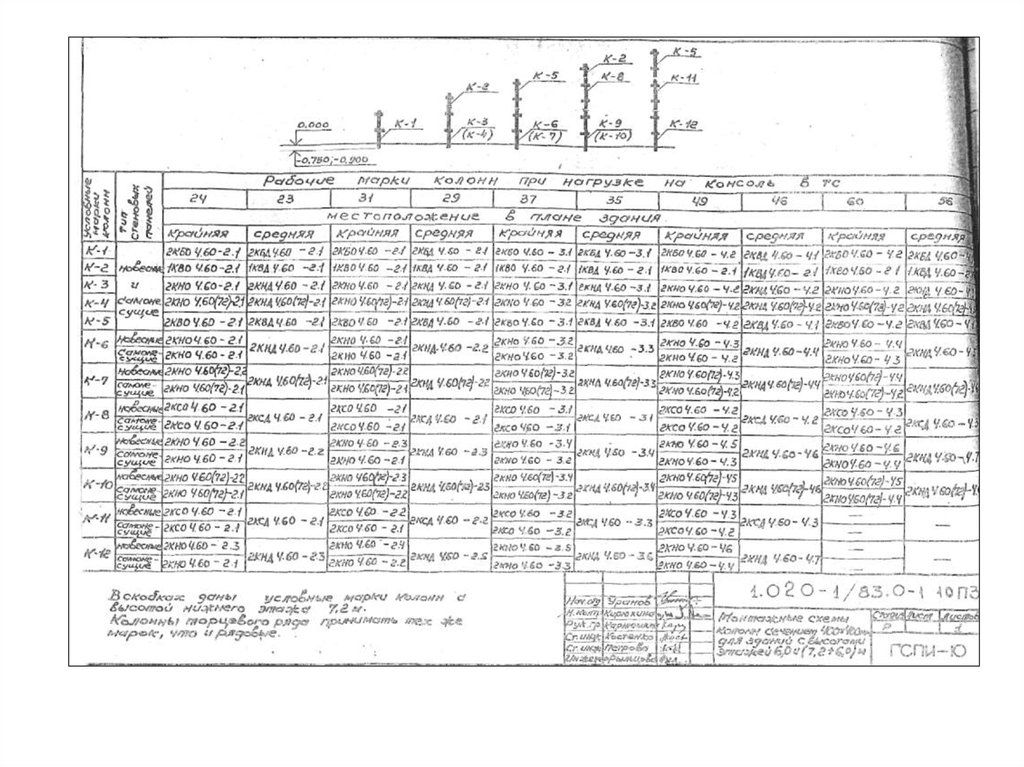 К-5
К-2
К-5
К-8
К-11
К-2
К-1
К-3
(К-4)
К-6
(К-7)
К-9
(К-10)
К-12
0.000
-0,750;-0,900
Условные марки колонн
Тип стеновых панелей
Рабочие марки колонн при нагрузке на консоль в тс
24 23 31 29 37 35 49 46 60 56
местоположение в плане здания
крайняя средняя крайняя средняя крайняя средняя крайняя средняя крайняя средняя
К-1 2КБО 4.60-2.1 2КБД 4.60-2.1 2КБО 4.60-2.1 2КБД 4.60-2.1 2КБО 4.60-3.1 2КБД 4.60-3.1 2КБО 4.60-4.2 2КБД 4.60-4.1 2КБО 4.60-4.2 2КБД 4.60
К-2 навесные 1КВО 4.60-2.1 1КВД 4.60-2.1 1КВО 4.60-2.1 1КВД 4.60-2.1 1КВО 4.60-2.1 1КВД 4.60-2.1 1КВО 4.60-2.1 1КВД 4.60-2.1 1КВО 4.60-2.1 1КВД 4.60
К-3 и 2КНО 4.60-2.1 2КНД 4.60-2.1 2КНО 4.60-2.1 2КНД 4.60-2.1 2КНО 4.60-3.1 2КНД 4.60-3.1 2КНО 4.60-4.2 2КНД 4.60-4.2 2КНО 4.60-4.2 2КНД 4.60
К-4 самоне- 2КНО 4.60(72)-2.1 2КНД 4.60(72)-2.1 2КНО 4.60(72)-2.1 2КНД 4.60(72)-2.1 2КНО 4.60(72)-3.2 2КНД 4.60(72)-3.2 2КНО 4.60(72)-4.2 2КНД 4.60(72)-4.2 2КНО 4.60(72)-4.2 2КНД 4.60(72)
К-5 сущие 2КВО 4.60-2.1 2КВД 4.60-2.1 2КВО 4.60-2.1 2КВД 4.60-2.1 2КВО 4.60-3.1 2КВД 4.60-3.1 2КВО 4.60-4.2 2КВД 4.60-4.1 2КВО 4.60-4.2 2КВД 4.60
К-6 навесные 2КНО 4.60-2.1 2КНД 4.60-2.1 2КНО 4.60-2.1 2КНД 4.60-2.2 2КНО 4.60-3.2 2КНД 4.60-3.3 2КНО 4.60-4.3 2КНД 4.60-4.4 2КНО 4.60-4.4 2КНД 4.60
самоне-сущие 2КНО 4.60-2.1 2КНО 4.60-2.1 2КНО 4.60-3.2 2КНО 4.60-4.2 2КНО 4.60-4.3
К-7 навесные 2КНО 4.60(72)-2.2 2КНД 4.60(72)-2.1 2КНО 4.60(72)-2.2 2КНД 4.60(72)-2.2 2КНО 4.60(72)-3.2 2КНД 4.60(72)-3.3 2КНО 4.60(72)-4.3 2КНД 4.60(72)-4.4 2КНО 4.60(72)-4.4 2КНД 4.60(72)
самоне-сущие 2КНО 4.60(72)-2.1 2КНО 4.60(72)-2.1 2КНО 4.60(72)-3.2 2КНО 4.60(72)-4.2 2КНО 4.60(72)-4.2
К-8 навесные 2КСО 4.60-2.1 2КСД 4.60-2.1 2КСО 4.60-2.1 2КСД 4.60-2.1 2КСО 4.60-3.1 2КСД 4.60-3.1 2КСО 4.60-4.2 2КСД 4.60-4.2 2КСО 4.60-4.3 2КСД 4.60
самоне-сущие 2КСО 4.60-2.1 2КСО 4.60-2.1 2КСО 4.60-3.1 2КСО 4.60-4.2 2КСО 4.60-4.2
К-9 навесные 2КНО 4.60-2.2 2КНД 4.60-2.2 2КНО 4.60-2.3 2КНД 4.60-2.3 2КНО 4.60-3.4 2КНД 4.60-3.4 2КНО 4.60-4.5 2КНД 4.60-4.6 2КНО 4.60-4.6 2КНД 4.60
самоне-сущие 2КНО 4.60-2.1 2КНО 4.60-2.1 2КНО 4.60-3.2 2КНО 4.60-4.3 2КНО 4.60-4.4
К-10 навесные 2КНО 4.60(72)-2.2 2КНД 4.60(72)-2.2 2КНО 4.60(72)-2.3 2КНД 4.60(72)-2.3 2КНО 4.60(72)-3.4 2КНД 4.60(72)-3.4 2КНО 4.60(72)-4.5 2КНД 4.60(72)-4.6 2КНО 4.60(72)-4.5 2КНД 4.60(72)
самоне-сущие 2КНО 4.60(72)-2.1 2КНО 4.60(72)-2.2 2КНО 4.60(72)-3.2 2КНО 4.60(72)-4.3 2КНО 4.60(72)-4.4
К-11 навесные 2КСО 4.60-2.1 2КСД 4.60-2.1 2КСО 4.60-2.2 2КСД 4.60-2.2 2КСО 4.60-3.2 2КСД 4.60-3.3 2КСО 4.60-4.3 2КСД 4.60-4.3 — —
самоне-сущие 2КСО 4.60-2.1 2КСО 4.60-2.1 2КСО 4.60-3.2 2КСО 4.60-4.2 —
К-12 навесные 2КНО 4.60-2.3 2КНД 4.60-2.3 2КНО 4.60-2.4 2КНД 4.60-2.5 2КНО 4.60-3.5 2КНД 4.60-3.6 2КНО 4.60-4.6 2КНД 4.60-4.7 — —
самоне-сущие 2КНО 4.60-2.1 2КНО 4.60-2.2 2КНО 4.60-3.3 2КНО 4.60-4.4 —
В скобках даны условные марки колонн с
высотой нижнего этажа 7,2 м.
Колонны торцевого ряда принимать тех же
марок, что и рядовые.
1.020-1/83.0-1 10 ПЗ
Нач.отд Уранов
Н.контр Кирюхина
Рук.гр
Ст.инж. Костенко
Ст.инж. Петрова
Инженер
Монтажные схемы
колонн сечением 400х400мм
для зданий с высотами
этажей 6,0 и (7,2+6,0) м
Стадия Лист Листов
Р 1
ГСПИ-Ю